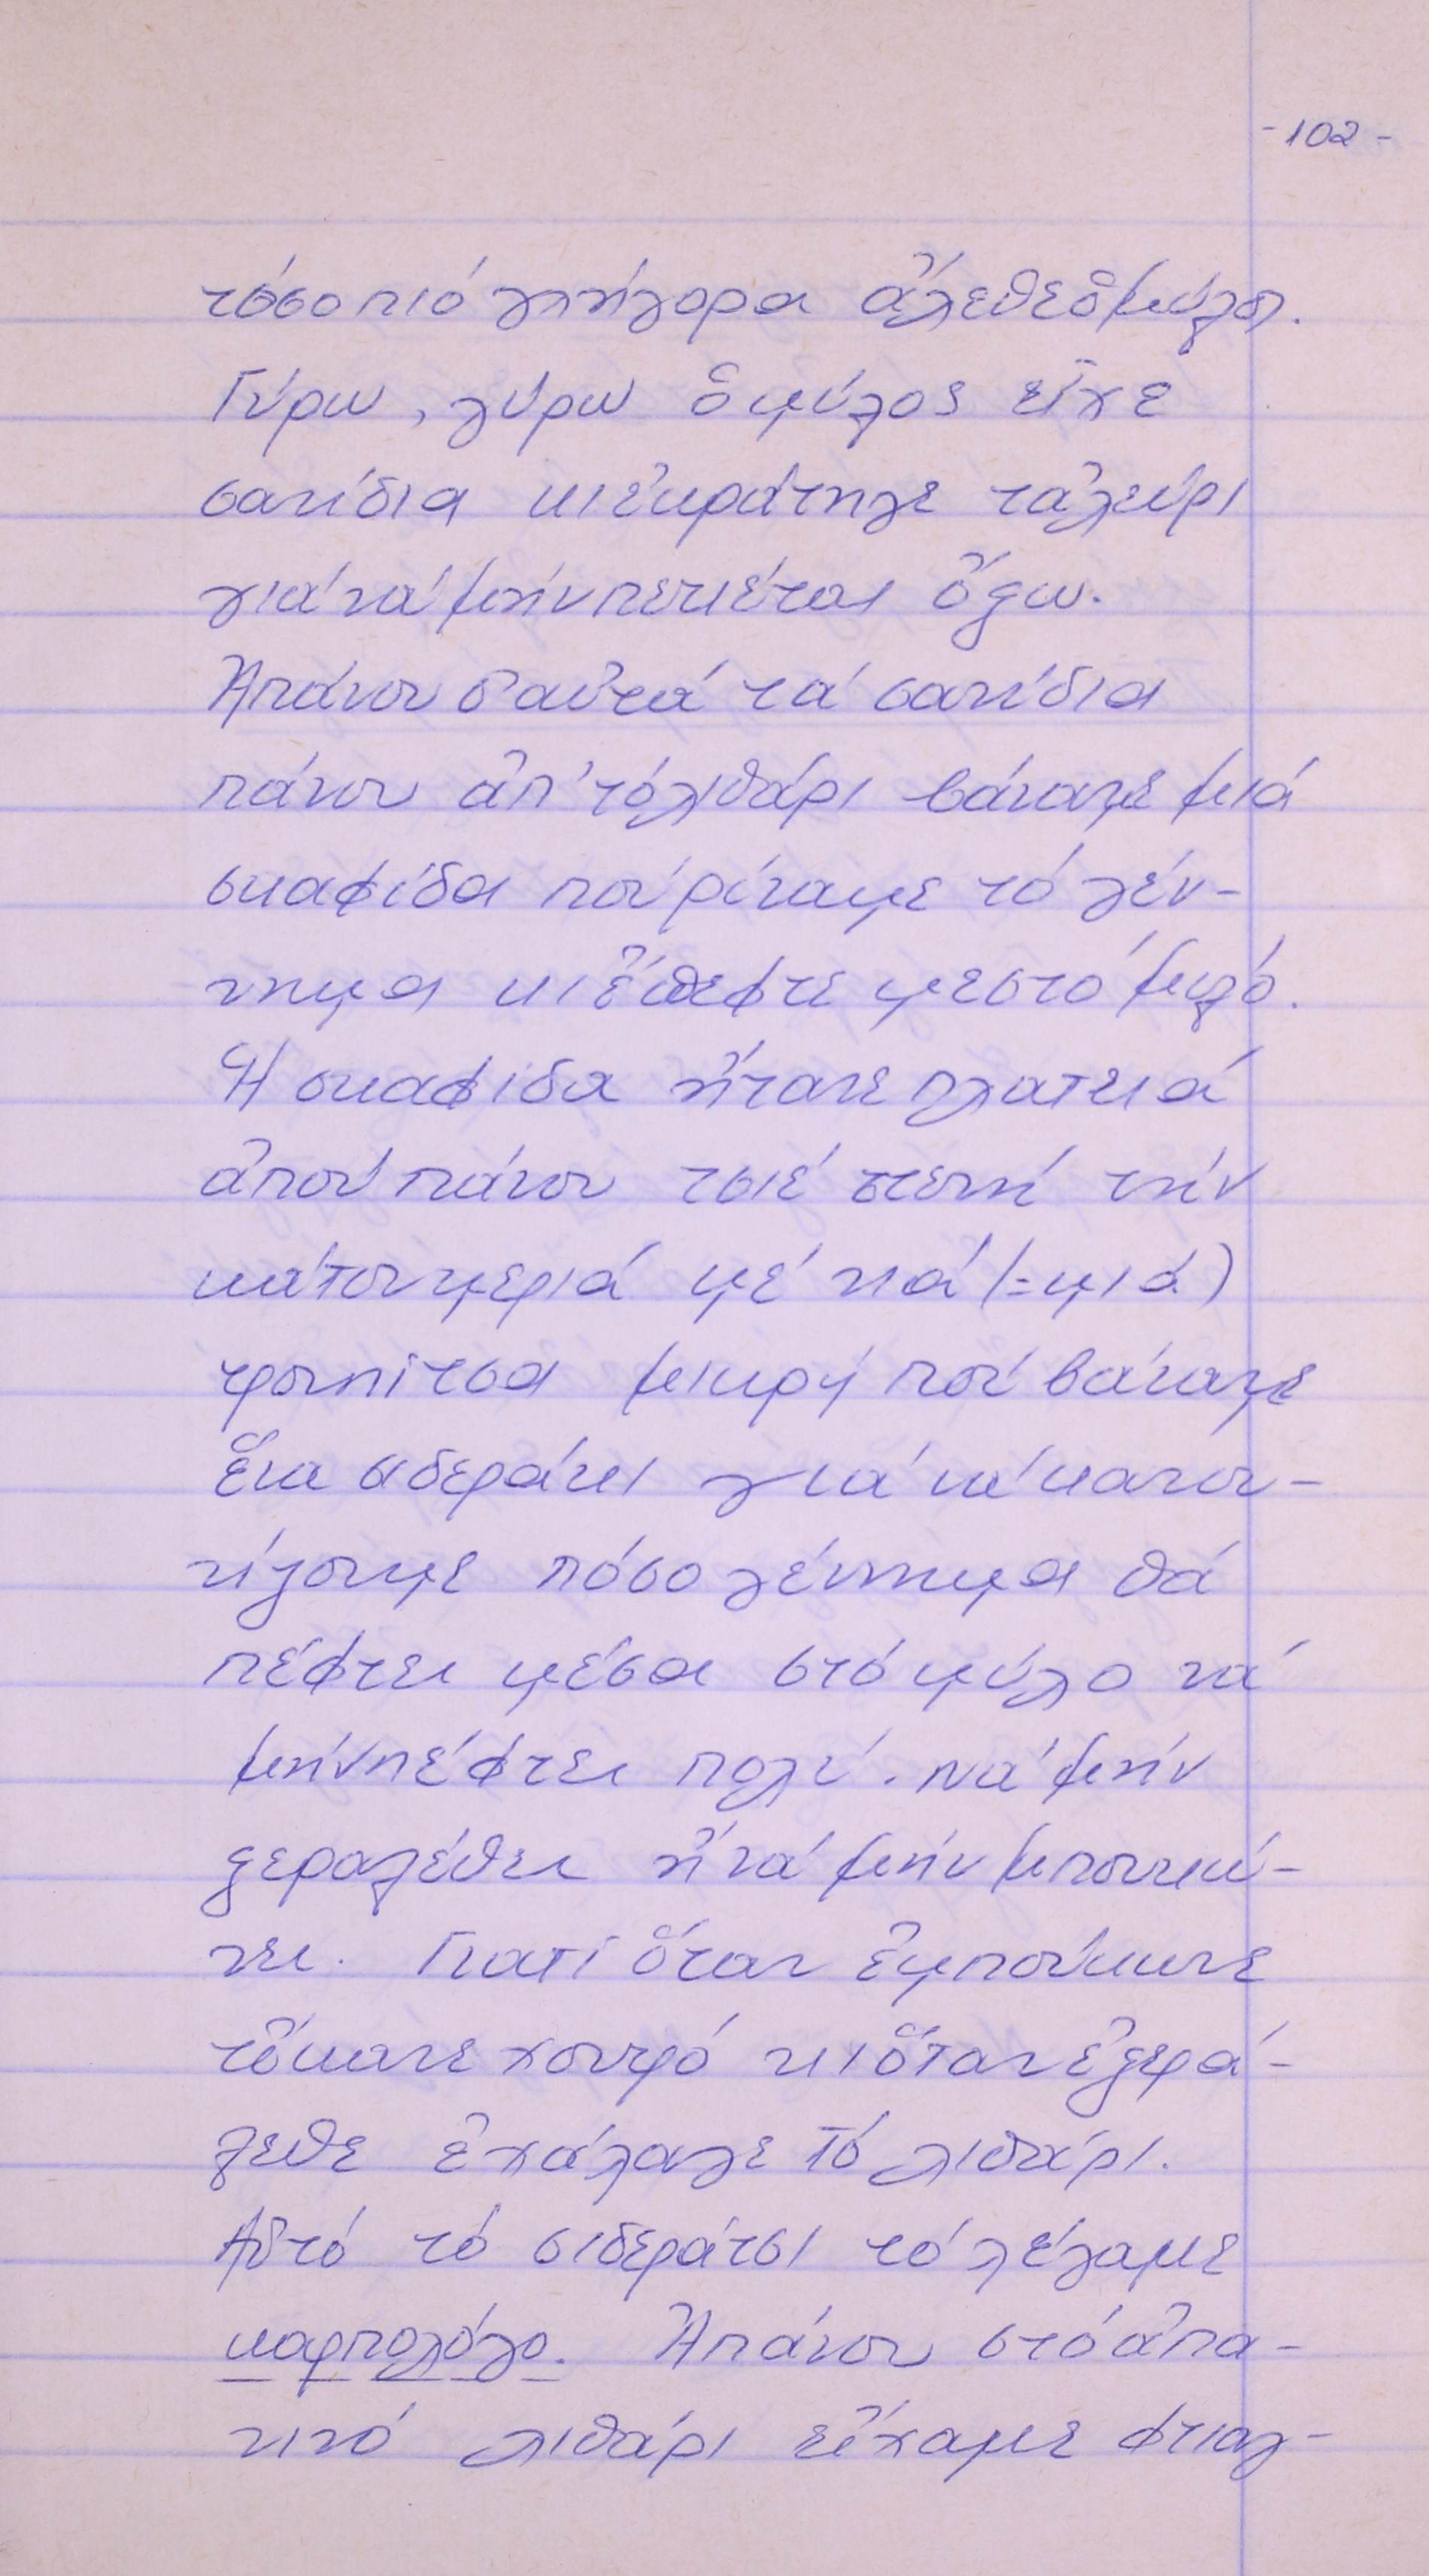 -102-
τόσο πιό γλήγορα ἄλεθε ὁ μύλος.
Γύρω, γύρω ὁ μύλος εἶχε
σανίδια κι ἐκράτηγε τἀλεύρι
γιά νά μήν πετιέται ὄξω.
Ἀπάνου σ' αὐτά τά σανίδια
πάνου ἀπ' τό λιθάρι βάναμε μιά
σκαφίδα πού ρίναμε τό γέν-
νημα κι ἔπεφτε μεστό μυλό.
Ἡ σκαφίδα ἤτανε πλατειά
ἀπού πάνου τσιέ στενή τήν
κάτου μεριά μέ νιά (=μιά)
τρουπίτσα μικρή πού βάναμε
ἕνα σιδεράκι γιά νά κανο-
νίζουμε πόσο γέννημα θά
πέφτει μέσα στό μύλο νά
μήν πέφτει πολύ. νά μήν
ξεραλέθει ἤ νά μήν μπουκώ-
νει. Γιατί ὅταν ἐμπούκωνε
τὄκανε χοντρό κι ὅταν ἐξερά-
λεθε ἐχάλαγε τό λιθάρι.
Αὐτό τό σιδεράτσι τό λέγαμε
καρπολόγο. Ἀπάνου στό ἀπα-
νινό λιθάρι εἴχαμε φτιαγ-